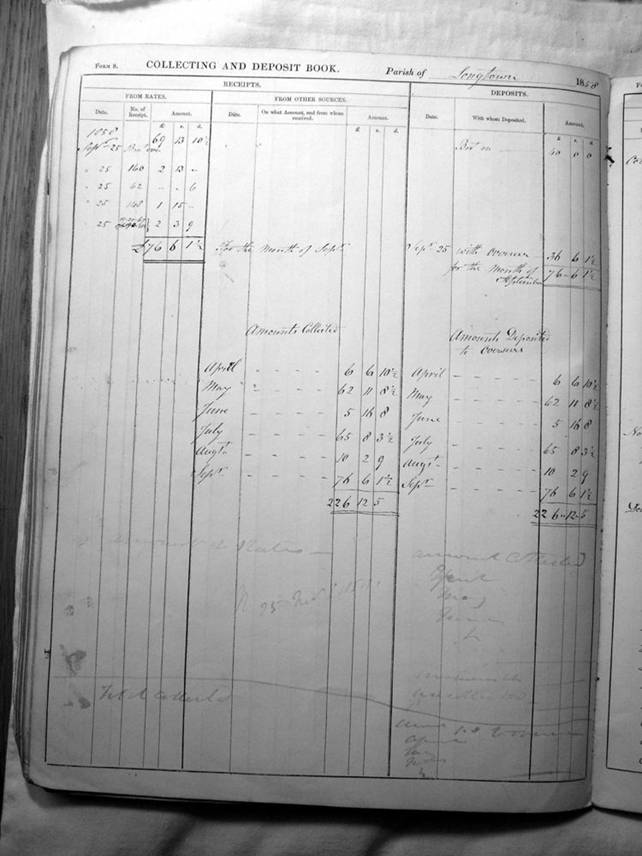 Form 8. COLLECTING AND DEPOSIT BOOK. Parish of Longtown 1858
RECEIPTS. DEPOSITS.
FROM RATES. FROM OTHER SOURCES.
Date. No. of Receipt. Amount. Date. On what Account, and from whom received. Amount. Date. With whom Deposited. Amount.
£. s. d. £. s. d. £. s. d.
1858
Sept 25 69 13 10½ 40 0 0
" 25 160 2 13 -
" 25 62 - - 6
" 25 148 1 15 -
25 2 3 9
£76 6 1½ For the month of Sept Sept 25 with overseer 36 6 1½
for the month of September 76 6 1½
Amounts Collected Amounts Deposited to overseers
April - - - - 6 6 10½ April - - - - 6 6 10½
May " - - - 62 11 8½ May - - - - 62 11 8½
June - - - - 5 16 8 June - - - - 5 16 8
July - - - - 65 8 3½ July - - - - 65 8 3½
Augt - - - - 10 2 9 Augt - - - - 10 2 9
Sept - - - - 76 6 1½ Sept - - - - 76 6 1½
226 12 5 226 12 5
amount Collected
April
May
June